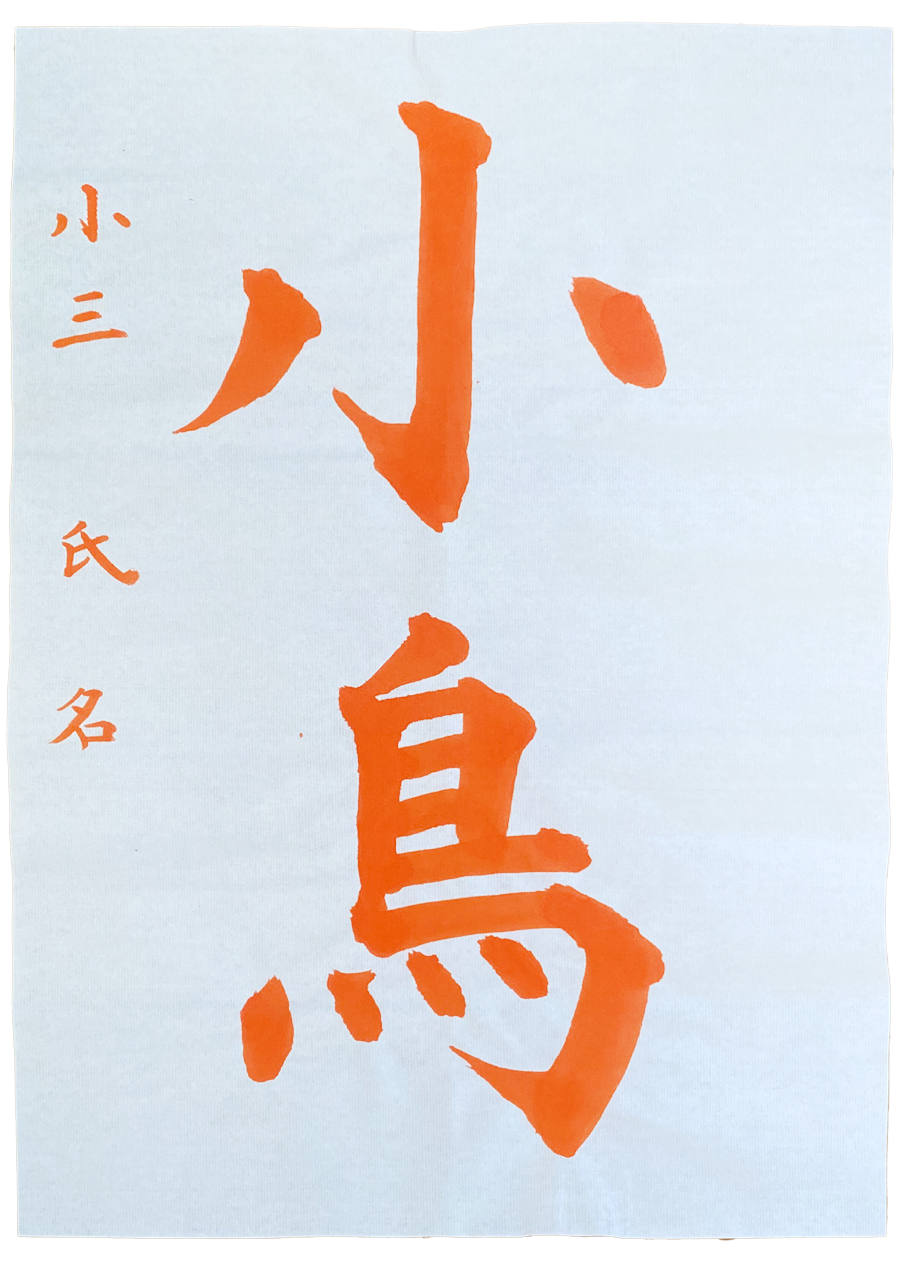 小鳥
小三 氏名